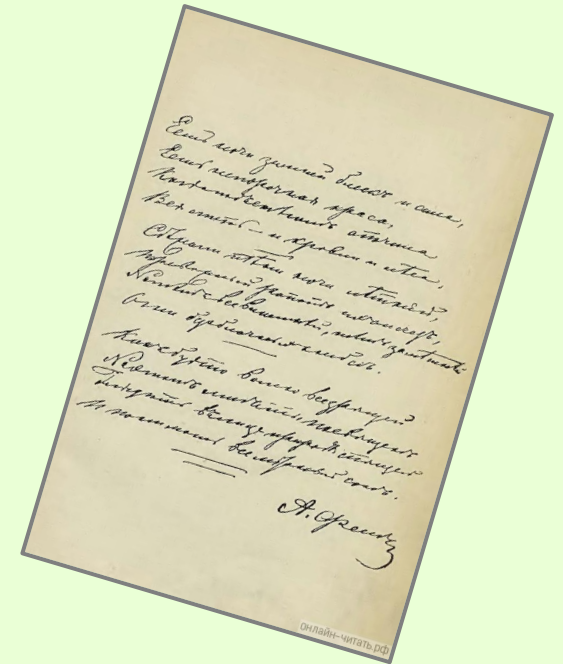 Есть ночи зимней блескъ и сила,
Есть непорочная краса,
Когда подъ снѣгомъ опочила
Вся степь – и кровли и лѣса,
Сбѣжали тѣни ночи лѣтней,
Тревожный ропотъ ихъ исчезъ,
Но тѣмъ всевластнѣй, тѣмъ замѣтнѣй
Огни безоблачныхъ небесъ.
Какъ будто волею всезрящей
На этотъ мигъ ты посвященъ
Глядѣть въ лицо природы спящей
И понимать всемірный сонъ.
А. Фетъ
онлайн-читать.рф